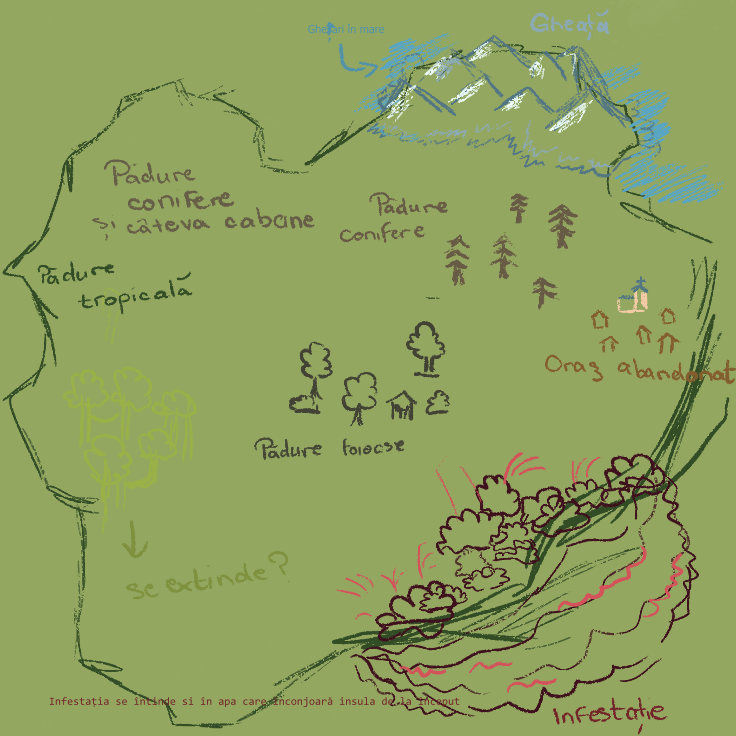 Ghețari în mare
Gheață
Pădure
conifere
și câteva cabane
Pădure
conifere
Pădure
tropicală
Oraș abandonat
Pădure foioase
se extinde?
Infestația se întinde si în apa care înconjoară insula de la început
Infestație